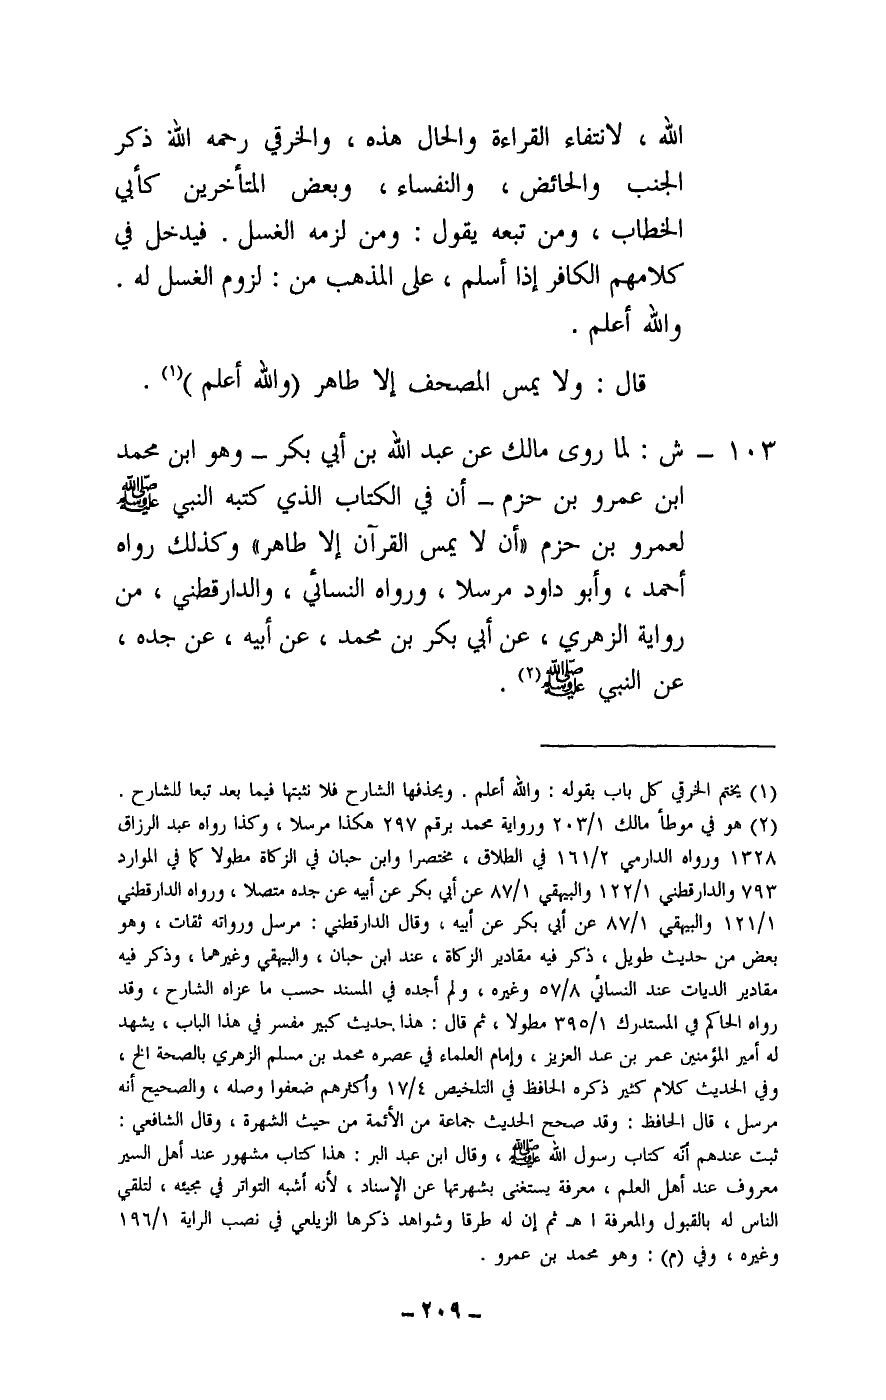 الله ، لانتفاء القراءة والحال هذه ، والخرقي رحمه الله ذكر
الجنب والحائض ، والنفساء ، وبعض المتأخرين كأبي
الخطاب ، ومن تبعه يقول : ومن لزمه الغسل . فيدخل في
كلامهم الكافر إذا أسلم ، على المذهب من : لزوم الغسل له .
والله أعلم .
قال : ولا يمس المصحف إلا طاهر (والله أعلم )(١) .
١٠٣ – ش : لما روى مالك عن عبد الله بن أبي بكر – وهو ابن محمد
ابن عمرو بن حزم – أن في الكتاب الذي كتبه النبي ﷺ
لعمرو بن حزم «أن لا يمس القرآن إلا طاهر» وكذلك رواه
أحمد ، وأبو داود مرسلا ، ورواه النسائي ، والدارقطني ، من
رواية الزهري ، عن أبي بكر بن محمد ، عن أبيه ، عن جده ،
عن النبي ﷺ(٢) .
(١) يختم الخرقي كل باب بقوله : والله أعلم . ويحذفها الشارح فلا نثبتها فيما بعد تبعا للشارح .
(٢) هو في موطأ مالك ٢٠٣/١ ورواية محمد برقم ٢٩٧ هكذا مرسلا ، وكذا رواه عبد الرزاق
١٣٢٨ ورواه الدارمي ١٦١/٢ في الطلاق ، مختصرا وابن حبان في الزكاة مطولا كما في الموارد
٧٩٣ والدارقطني ١٢٢/١ والبيهقي ٨٧/١ عن أبي بكر عن أبيه عن جده متصلا ، ورواه الدارقطني
١٢١/١ والبيهقي ٨٧/١ عن أبي بكر عن أبيه ، وقال الدارقطني : مرسل ورواته ثقات ، وهو
بعض من حديث طويل ، ذكر فيه مقادير الزكاة ، عند ابن حبان ، والبيهقي وغيرهما ، وذكر فيه
مقادير الديات عند النسائي ٥٧/٨ وغيره ، ولم أجده في المسند حسب ما عزاه الشارح ، وقد
رواه الحاكم في المستدرك ٣٩٥/١ مطولا ، ثم قال : هذا حديث كبير مفسر في هذا الباب ، يشهد
له أمير المؤمنين عمر بن عبد العزيز ، وإمام العلماء في عصره محمد بن مسلم الزهري بالصحة الخ ،
وفي الحديث كلام كثير ذكره الحافظ في التلخيص ١٧/٤ وأكثرهم ضعفوا وصله ، والصحيح أنه
مرسل ، قال الحافظ : وقد صحح الحديث جماعة من الأئمة من حيث الشهرة ، وقال الشافعي :
ثبت عندهم أنه كتاب رسول الله ﷺ ، وقال ابن عبد البر : هذا كتاب مشهور عند أهل السير
معروف عند أهل العلم ، معرفة يستغنى بشهرتها عن الإسناد ، لأنه أشبه التواتر في مجيئه ، لتلقي
الناس له بالقبول والمعرفة ا هـ ثم إن له طرقا وشواهد ذكرها الزيلعي في نصب الراية ١٩٦/١
وغيره ، وفي (م) : وهو محمد بن عمرو .
– ٢٠٩ –